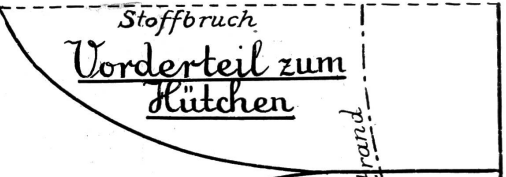 Stoffbruch
Vorderteil zum
Hütchen